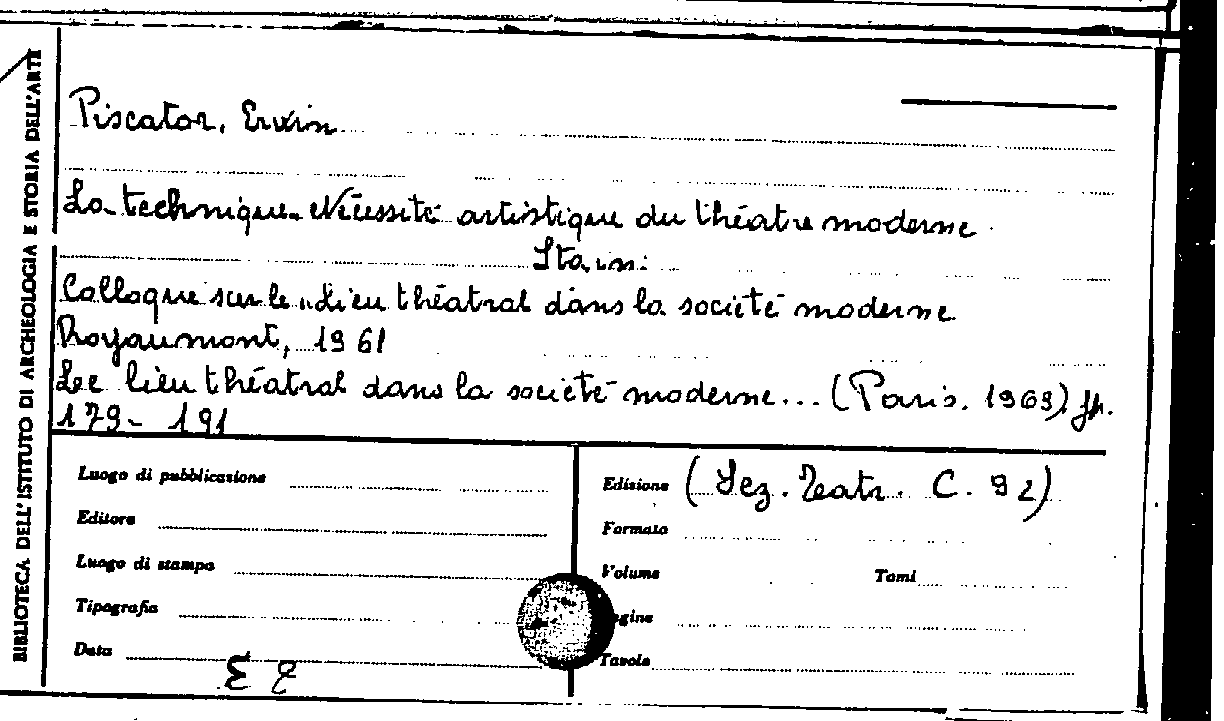 BIBLIOTECA DELL'ISTITUTO DI ARCHEOLOGIA E STORIA DELL'ARTE
Piscator, Erwin
La technique. Nécessité artistique du théatre moderne
Sta in:
Colloque sur le "Lieu théatral dans la societé moderne
Royaumont, 1961
Lee lieu théatral dans la societé moderne... (Paris. 1963) pp.
179- 191
Luogo di pubblicazione
Editore
Luogo di stampa
Tipografia
Data
Edizione (Sez. Teatr. C. 92)
Formato
Volume Tomi
agine
Tavole